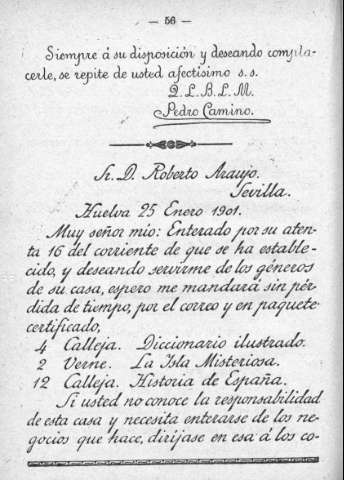 — 56 —
Siempre á su disposición y deseando compla-
cerle, se repite de usted afectísimo s. s.
Q. L. B. L. M.
Pedro Camino.
Sr. D. Roberto Araujo.
Sevilla.
Huelva 25 Enero 1901.
Muy señor mio: Enterado por su aten-
ta 16 del corriente de que se ha estable-
cido, y deseando servirme de los géneros
de su casa, espero me mandará sin pér-
dida de tiempo, por el correo y en paquete
certificado,
4 Calleja. Diccionario ilustrado.
2 Verne. La Isla Misteriosa.
12 Calleja. Historia de España.
Si usted no conoce la responsabilidad
de esta casa y necesita enterarse de los ne-
gocios que hace, diríjase en esa á los co-